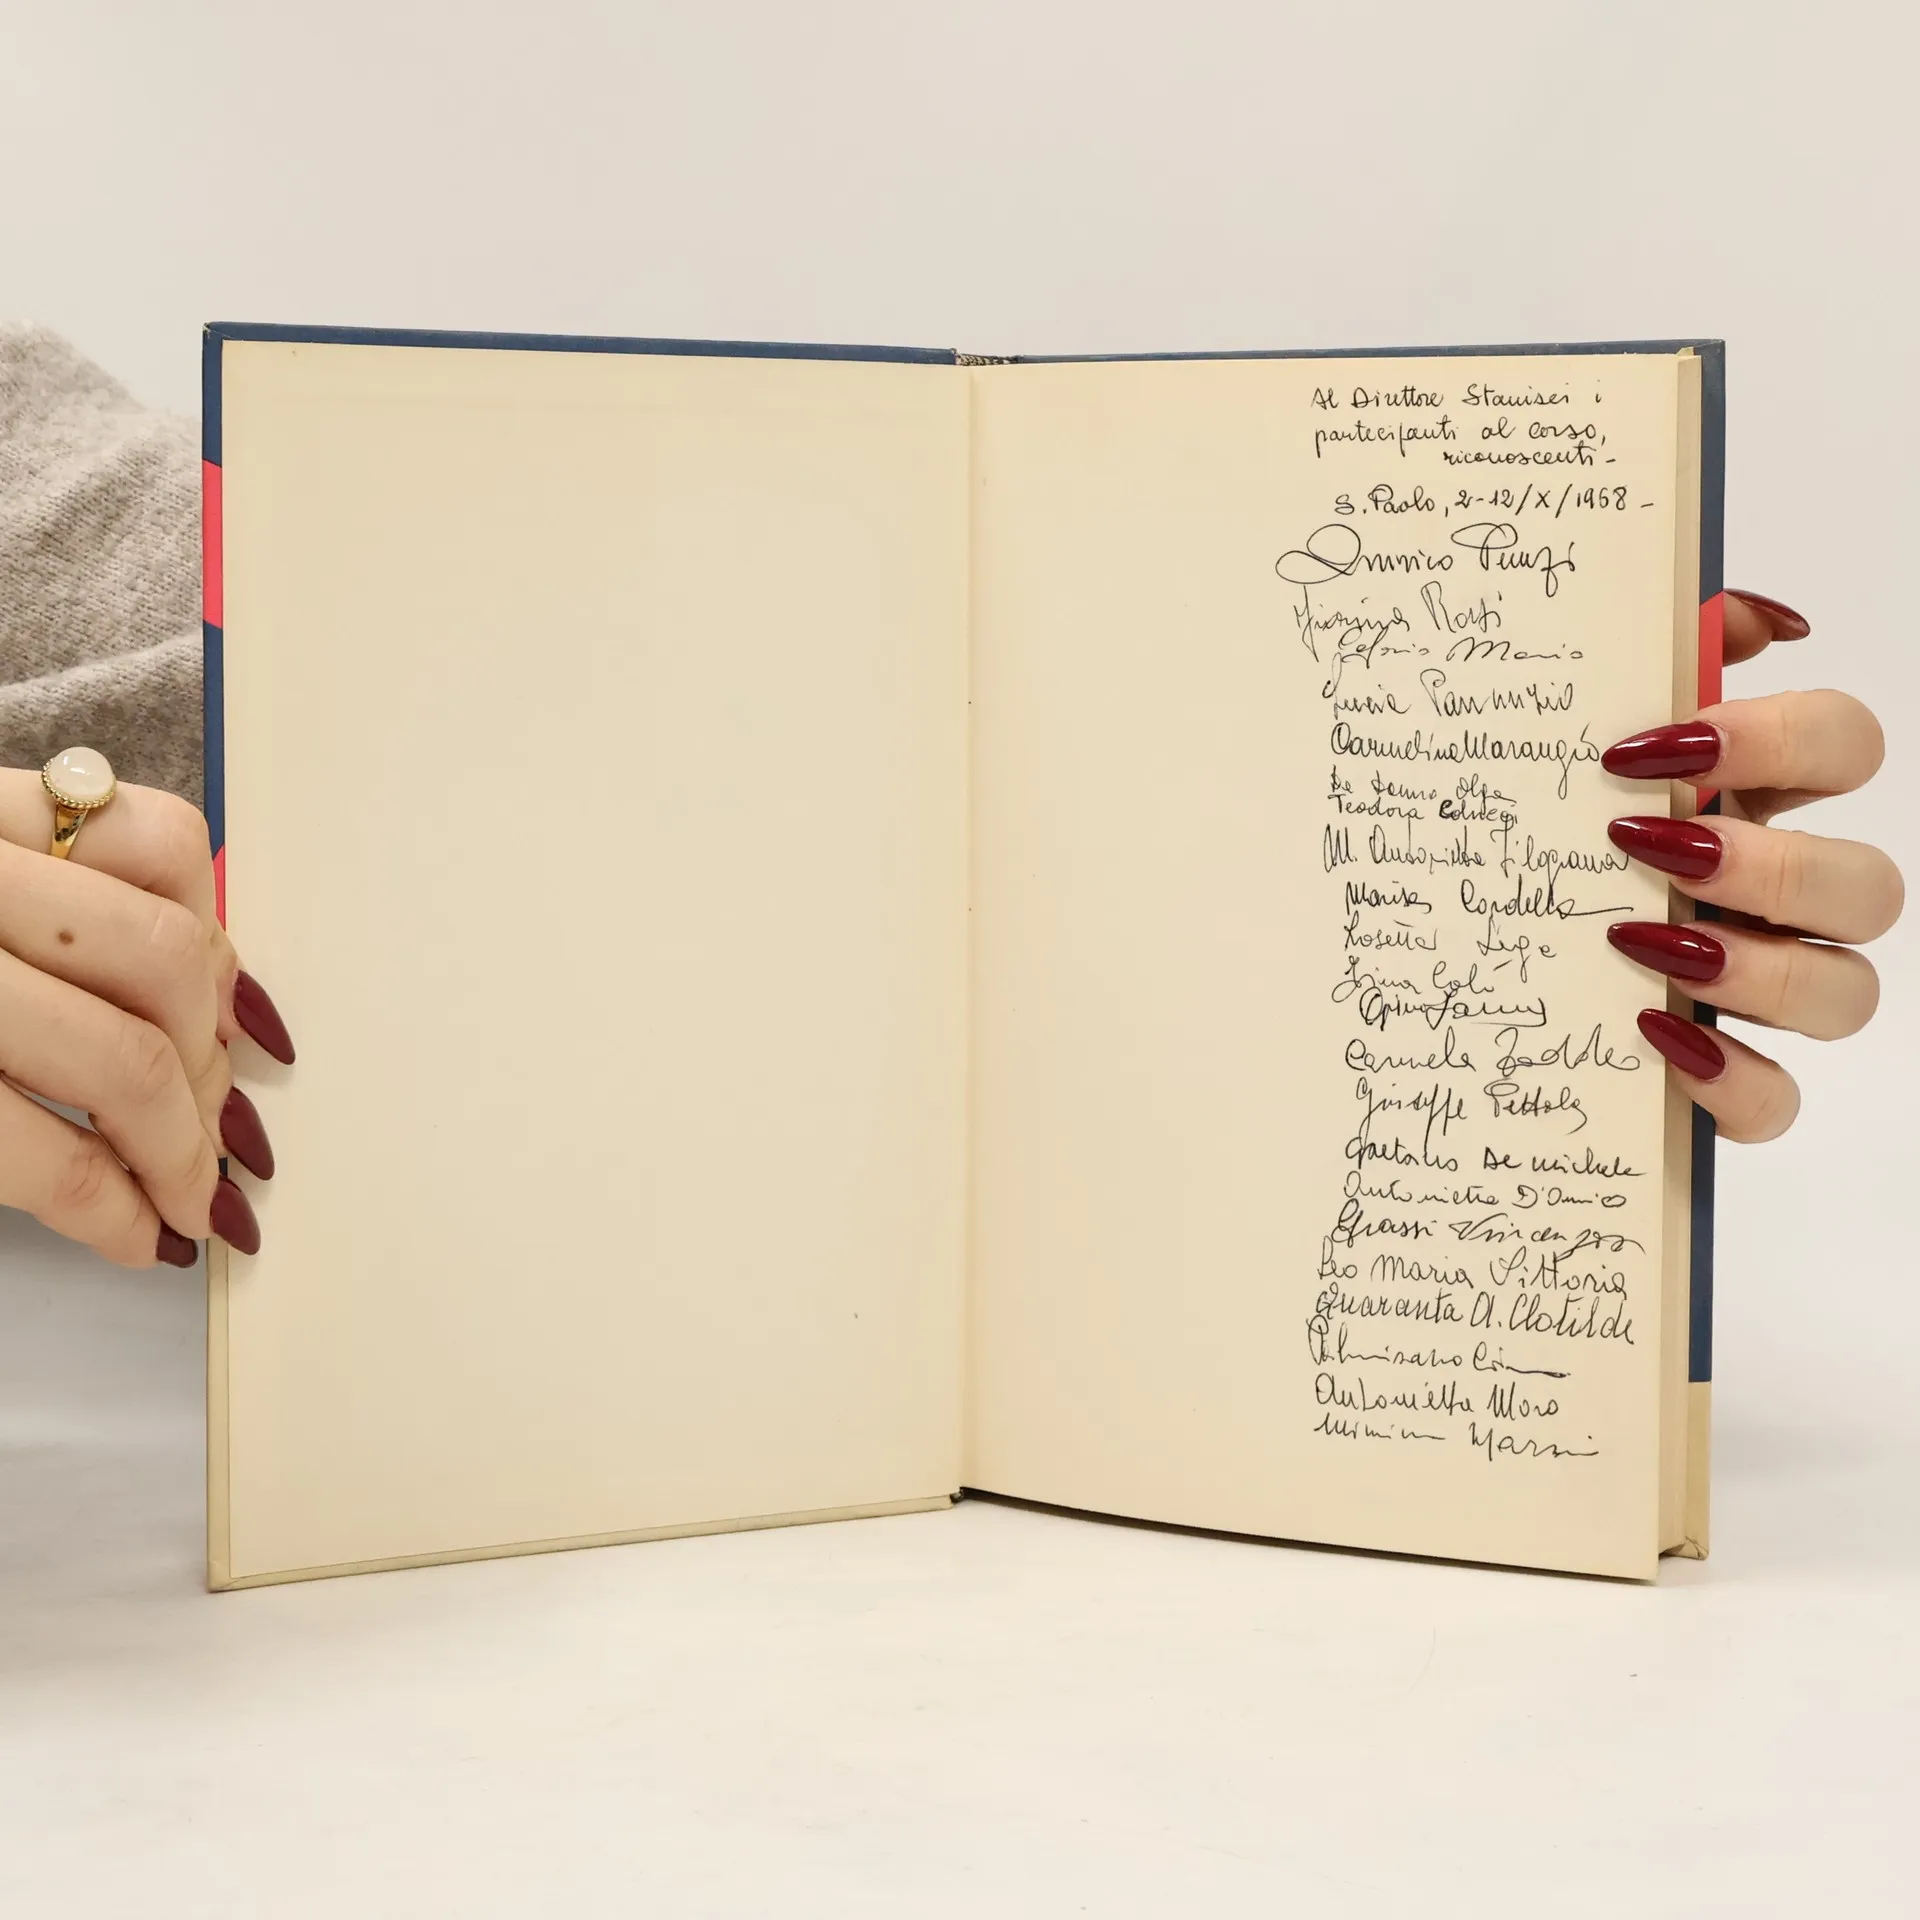 Al Direttore Stanisci i
partecipanti al corso,
riconoscenti -
S. Paolo, 2-12/X/1968 -
Rossi
Mario
Lucia Pannunzio
Carmelina Marangió
De Donno Olga
Teodora
M. Antonietta Filograna
Marisa Cordella
Rosetta Lega
Gina Calò
Carmela Taddeo
Giuseppe Pettola
Gaetano De Michele
Antonietta D'Amico
Grassi Vincenza
Leo Maria Vittoria
Quaranta A. Clotilde
Palmisano
Antonietta Moro
Mimina